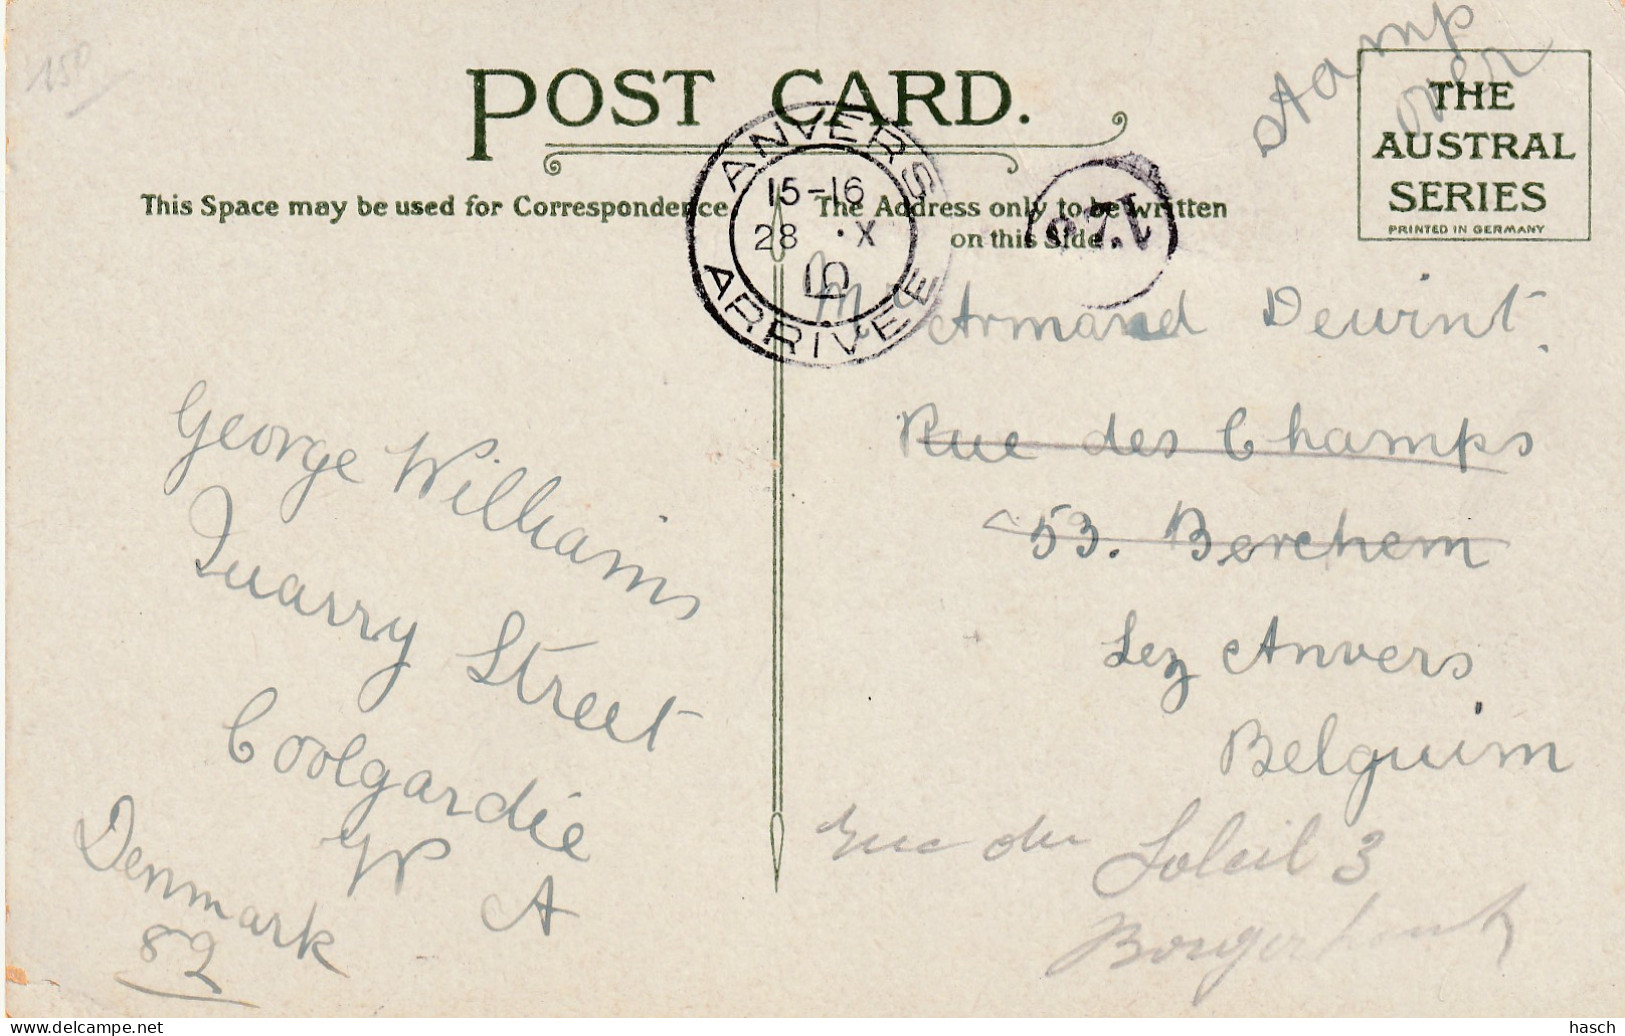 150
stamp
over
POST CARD.
THE
AUSTRAL
SERIES
PRINTED IN GERMANY
This Space may be used for Correspondence
The Address only to be written
on this Side.
ANVERS
15-16
28 · X
10
ARRIVEE
Mr Armand Dewint.
Rue des Champs
53. Berchem
Lez Anvers
Belguim
rue du Soleil 3
Borgerhout
George Williams
Quarry Street
Coolgardie
W A
Denmark
82
delcampe.net
hasch